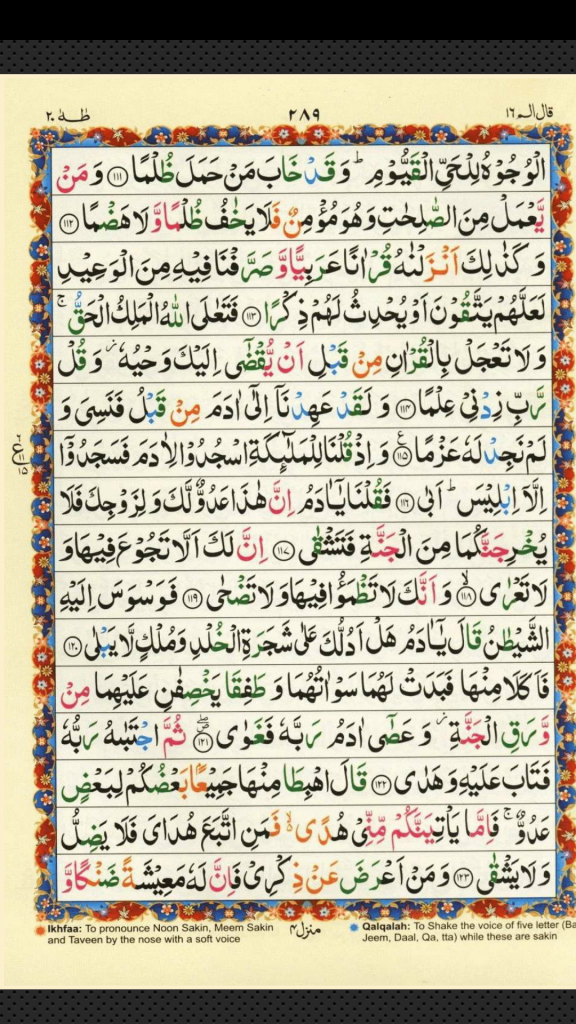 طٰهٰ ٢٠
٢٨٩
قال الم ١٦
الْوُجُوْهُ لِلْحَيِّ الْقَيُّوْمِ ؕ وَقَدْ خَابَ مَنْ حَمَلَ ظُلْمًا ﴿۱۱۱﴾ وَمَنْ
يَّعْمَلْ مِنَ الصّٰلِحٰتِ وَهُوَ مُؤْمِنٌ فَلَا يَخٰفُ ظُلْمًا وَّلَا هَضْمًا ﴿۱۱۲﴾
وَكَذٰلِكَ اَنْزَلْنٰهُ قُرْاٰنًا عَرَبِيًّا وَّصَرَّفْنَا فِيْهِ مِنَ الْوَعِيْدِ
لَعَلَّهُمْ يَتَّقُوْنَ اَوْ يُحْدِثُ لَهُمْ ذِكْرًا ﴿۱۱۳﴾ فَتَعٰلَى اللّٰهُ الْمَلِكُ الْحَقُّ ۚ
وَلَا تَعْجَلْ بِالْقُرْاٰنِ مِنْ قَبْلِ اَنْ يُّقْضٰۤى اِلَيْكَ وَحْيُهٗ ؗ وَقُلْ
رَّبِّ زِدْنِيْ عِلْمًا ﴿۱۱۴﴾ وَلَقَدْ عَهِدْنَاۤ اِلٰۤى اٰدَمَ مِنْ قَبْلُ فَنَسِيَ وَ
لَمْ نَجِدْ لَهٗ عَزْمًا ﴿۱۱۵﴾ وَاِذْ قُلْنَا لِلْمَلٰٓئِكَةِ اسْجُدُوْا لِاٰدَمَ فَسَجَدُوْۤا
اِلَّاۤ اِبْلِيْسَ ؕ اَبٰى ﴿۱۱۶﴾ فَقُلْنَا يٰۤاٰدَمُ اِنَّ هٰذَا عَدُوٌّ لَّكَ وَلِزَوْجِكَ فَلَا
يُخْرِجَنَّكُمَا مِنَ الْجَنَّةِ فَتَشْقٰى ﴿۱۱۷﴾ اِنَّ لَكَ اَلَّا تَجُوْعَ فِيْهَا وَ
لَا تَعْرٰى ﴿۱۱۸﴾ۙ وَاَنَّكَ لَا تَظْمَؤُا فِيْهَا وَلَا تَضْحٰى ﴿۱۱۹﴾ فَوَسْوَسَ اِلَيْهِ
الشَّيْطٰنُ قَالَ يٰۤاٰدَمُ هَلْ اَدُلُّكَ عَلٰى شَجَرَةِ الْخُلْدِ وَمُلْكٍ لَّا يَبْلٰى ﴿۱۲۰﴾
فَاَكَلَا مِنْهَا فَبَدَتْ لَهُمَا سَوْاٰتُهُمَا وَطَفِقَا يَخْصِفٰنِ عَلَيْهِمَا مِنْ
وَّرَقِ الْجَنَّةِ ؗ وَعَصٰۤى اٰدَمُ رَبَّهٗ فَغَوٰى ﴿۱۲۱﴾ ثُمَّ اجْتَبٰىهُ رَبُّهٗ
فَتَابَ عَلَيْهِ وَهَدٰى ﴿۱۲۲﴾ قَالَ اهْبِطَا مِنْهَا جَمِيْعًۢا بَعْضُكُمْ لِبَعْضٍ
عَدُوٌّ ۚ فَاِمَّا يَاْتِيَنَّكُمْ مِّنِّيْ هُدًى ۙ۬ فَمَنِ اتَّبَعَ هُدَايَ فَلَا يَضِلُّ
وَلَا يَشْقٰى ﴿۱۲۳﴾ وَمَنْ اَعْرَضَ عَنْ ذِكْرِيْ فَاِنَّ لَهٗ مَعِيْشَةً ضَنْكًا وَّ
Ikhfaa: To pronounce Noon Sakin, Meem Sakin
and Taveen by the nose with a soft voice
منزل ٤
Qalqalah: To Shake the voice of five letter (Ba
Jeem, Daal, Qa, tta) while these are sakin